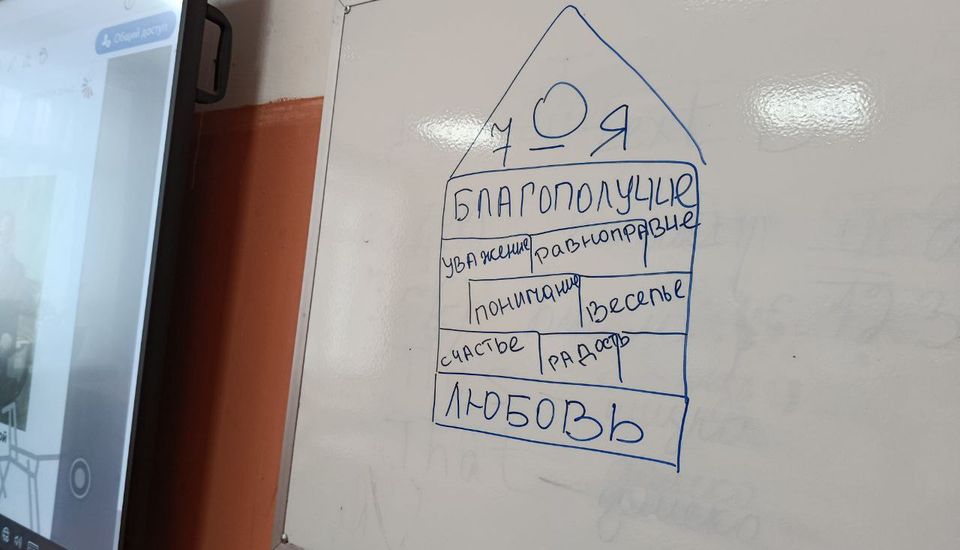 Общий доступ
7 О Я
БЛАГОПОЛУЧИЕ
уважение равноправие
понимание веселье
счастье радость
ЛЮБОВЬ
That